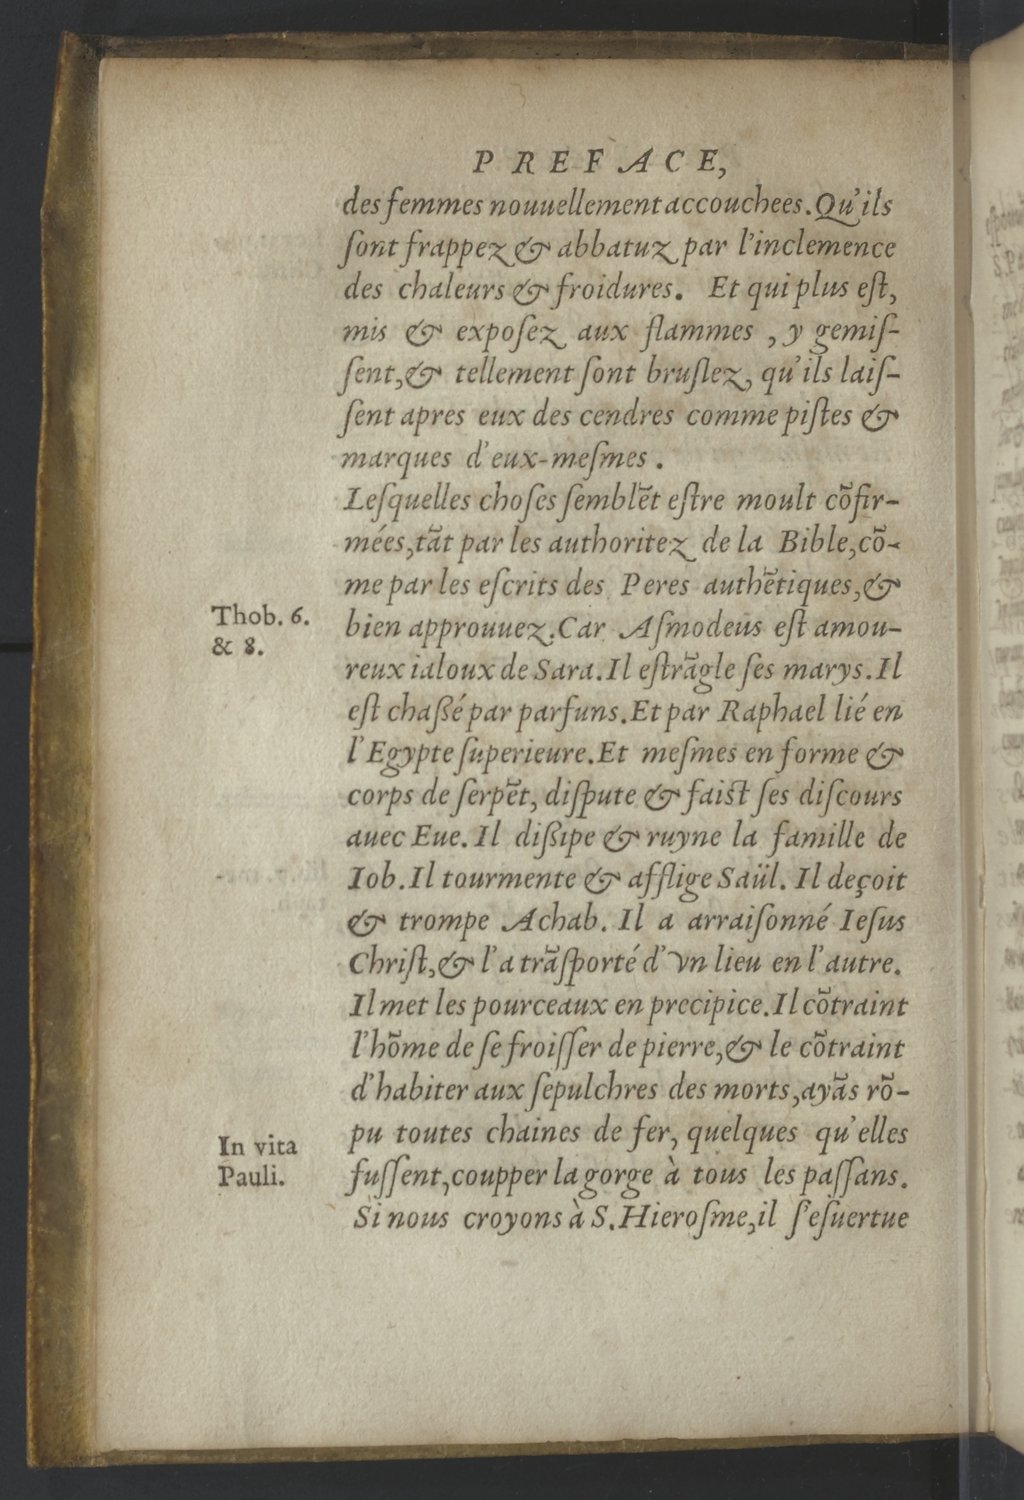 PREFACE,
des femmes nouuellement accouchees. Qu'ils
ſont frappez & abbatuz par l'inclemence
des chaleurs & froidures. Et qui plus eſt,
mis & expoſez aux flammes , y gemiſ-
ſent,& tellement ſont bruſlez, qu'ils laiſ-
ſent apres eux des cendres comme piſtes &
marques d'eux-meſmes .
Leſquelles choſes ſemblēt eſtre moult cōfir-
mées,tāt par les authoritez de la Bible,cō-
me par les eſcrits des Peres authētiques,&
Thob. 6.
& 8.
bien approuuez.Car Aſmodeus eſt amou-
reux ialoux de Sara.Il eſtrāgle ſes marys.Il
eſt chaßé par parfuns.Et par Raphael lié en
l'Egypte ſuperieure.Et meſmes en forme &
corps de ſerpēt, diſpute & faiſt ſes diſcours
auec Eue. Il dißipe & ruyne la famille de
Iob.Il tourmente & afflige Saül. Il deçoit
& trompe Achab. Il a arraiſonné Ieſus
Chriſt,& l'a trāſporté d'vn lieu en l'autre.
Il met les pourceaux en precipice.Il cōtraint
l'hōme de ſe froiſſer de pierre,& le cōtraint
d'habiter aux ſepulchres des morts,ayās rō-
In vita
Pauli.
pu toutes chaines de fer, quelques qu'elles
fuſſent,coupper la gorge à tous les paſſans.
Si nous croyons à S.Hieroſme,il ſ'eſuertue